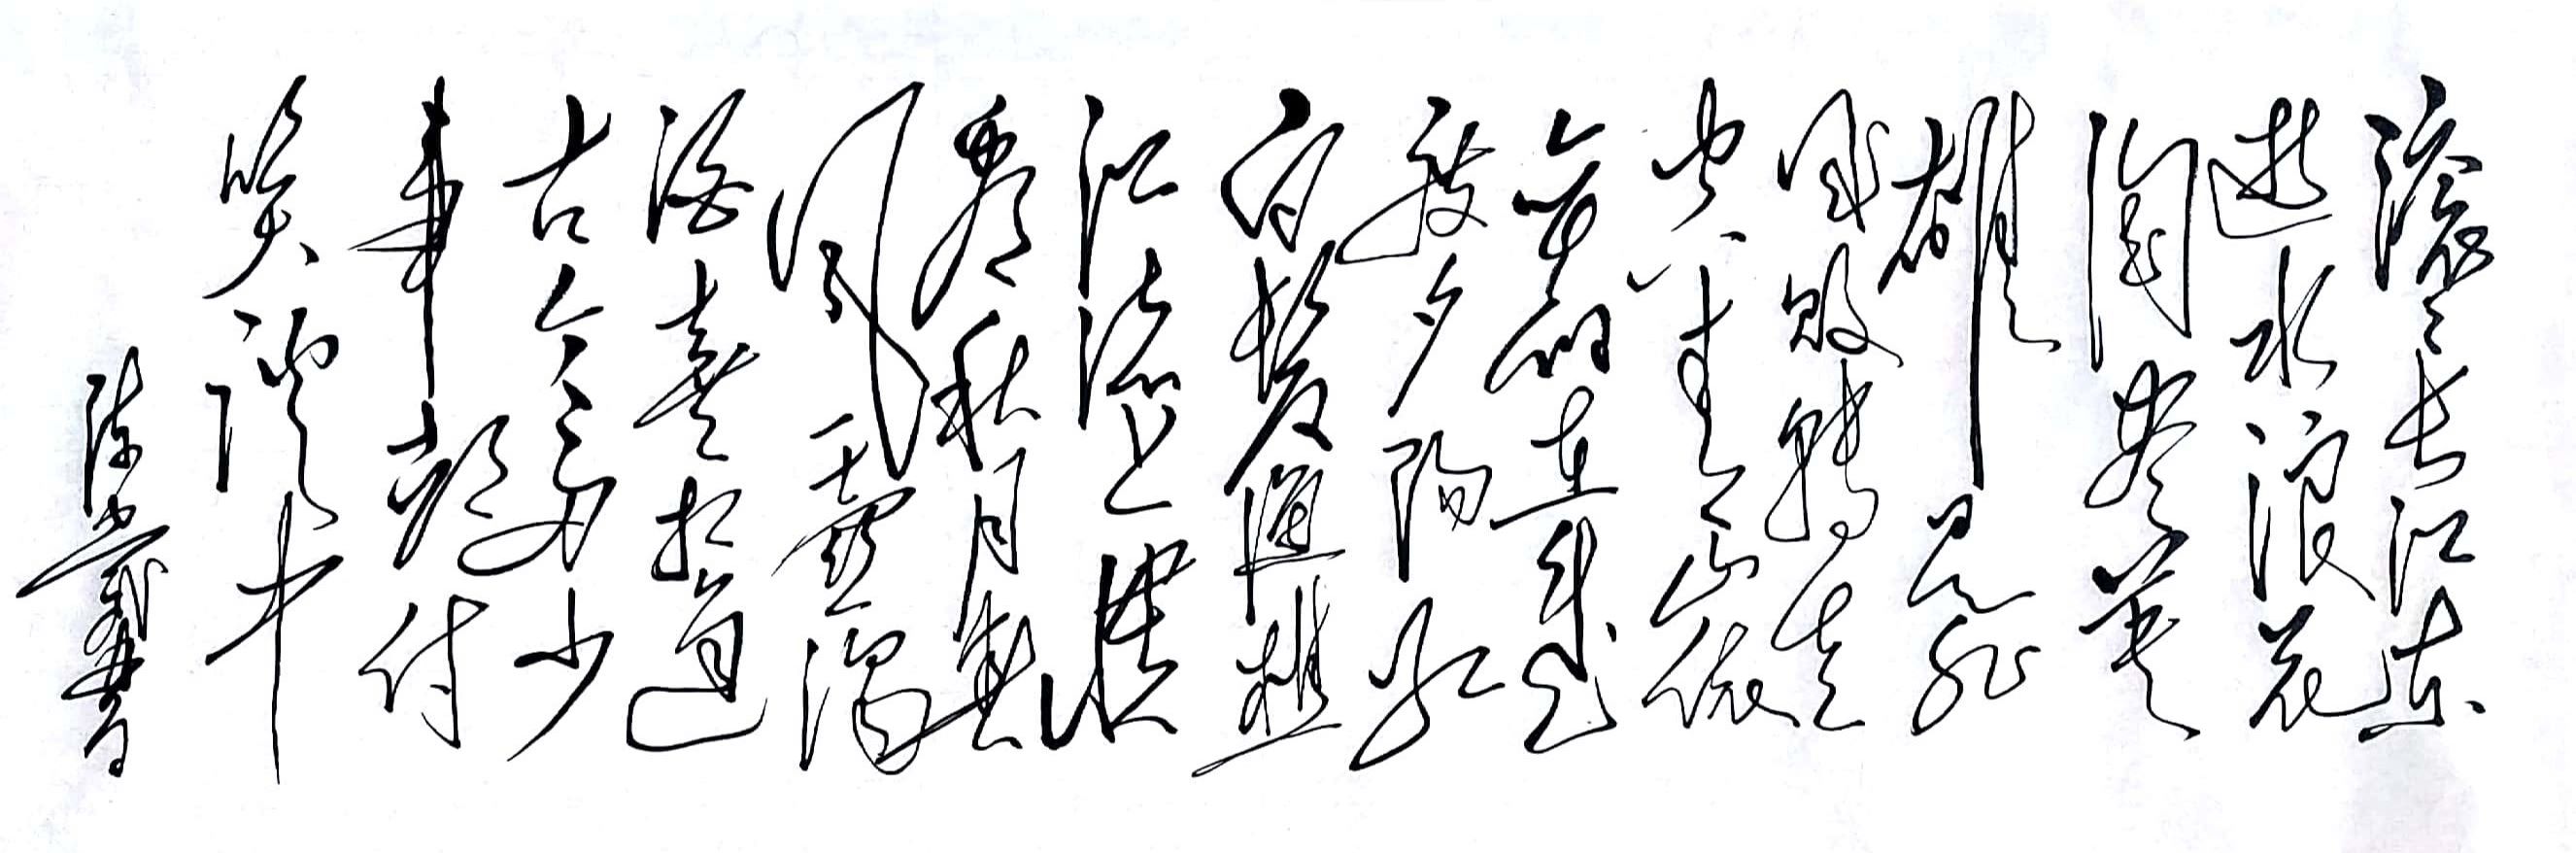 滚滚长江东
逝水浪花
淘尽英
雄是非
成败转头
空青山依
旧在几
度夕阳红
白发渔樵
江渚上惯
看秋月春
风一壶浊
酒喜相逢
古今多少
事都付
笑谈中
陈书